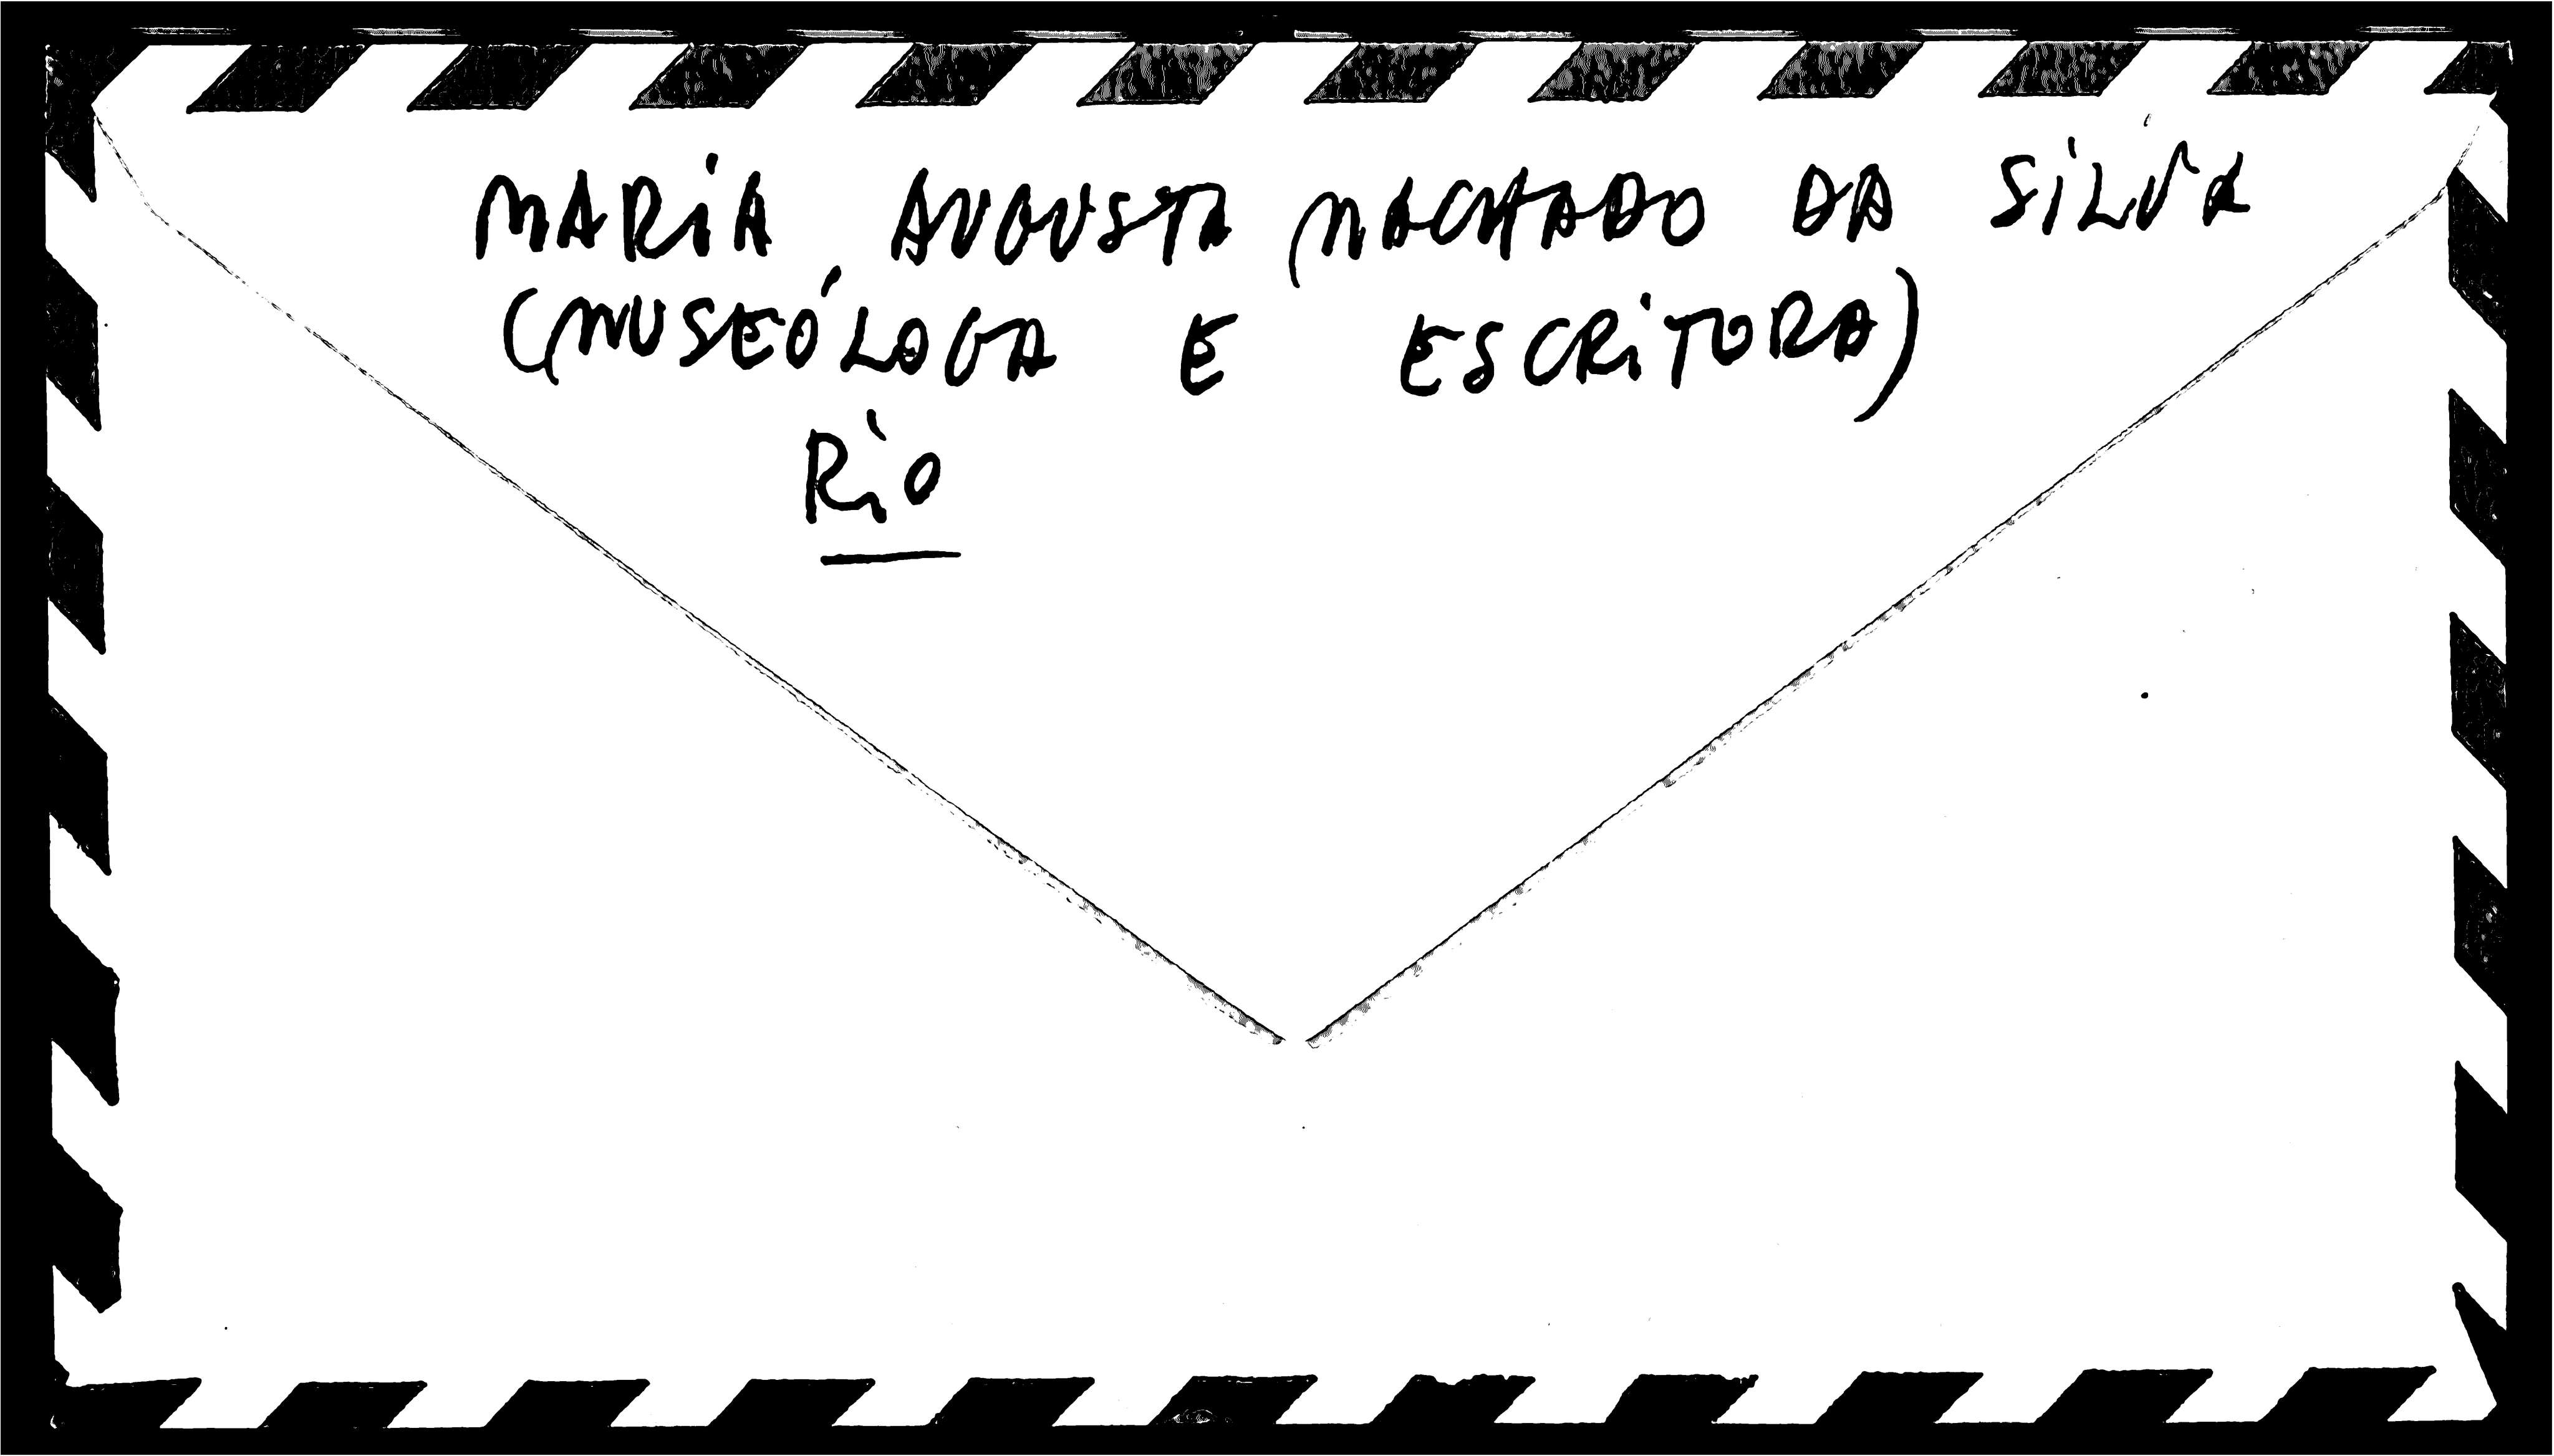 MARIA AUGUSTA MACHADO DA SILVA
(MUSEÓLOGA E ESCRITORA)
RIO